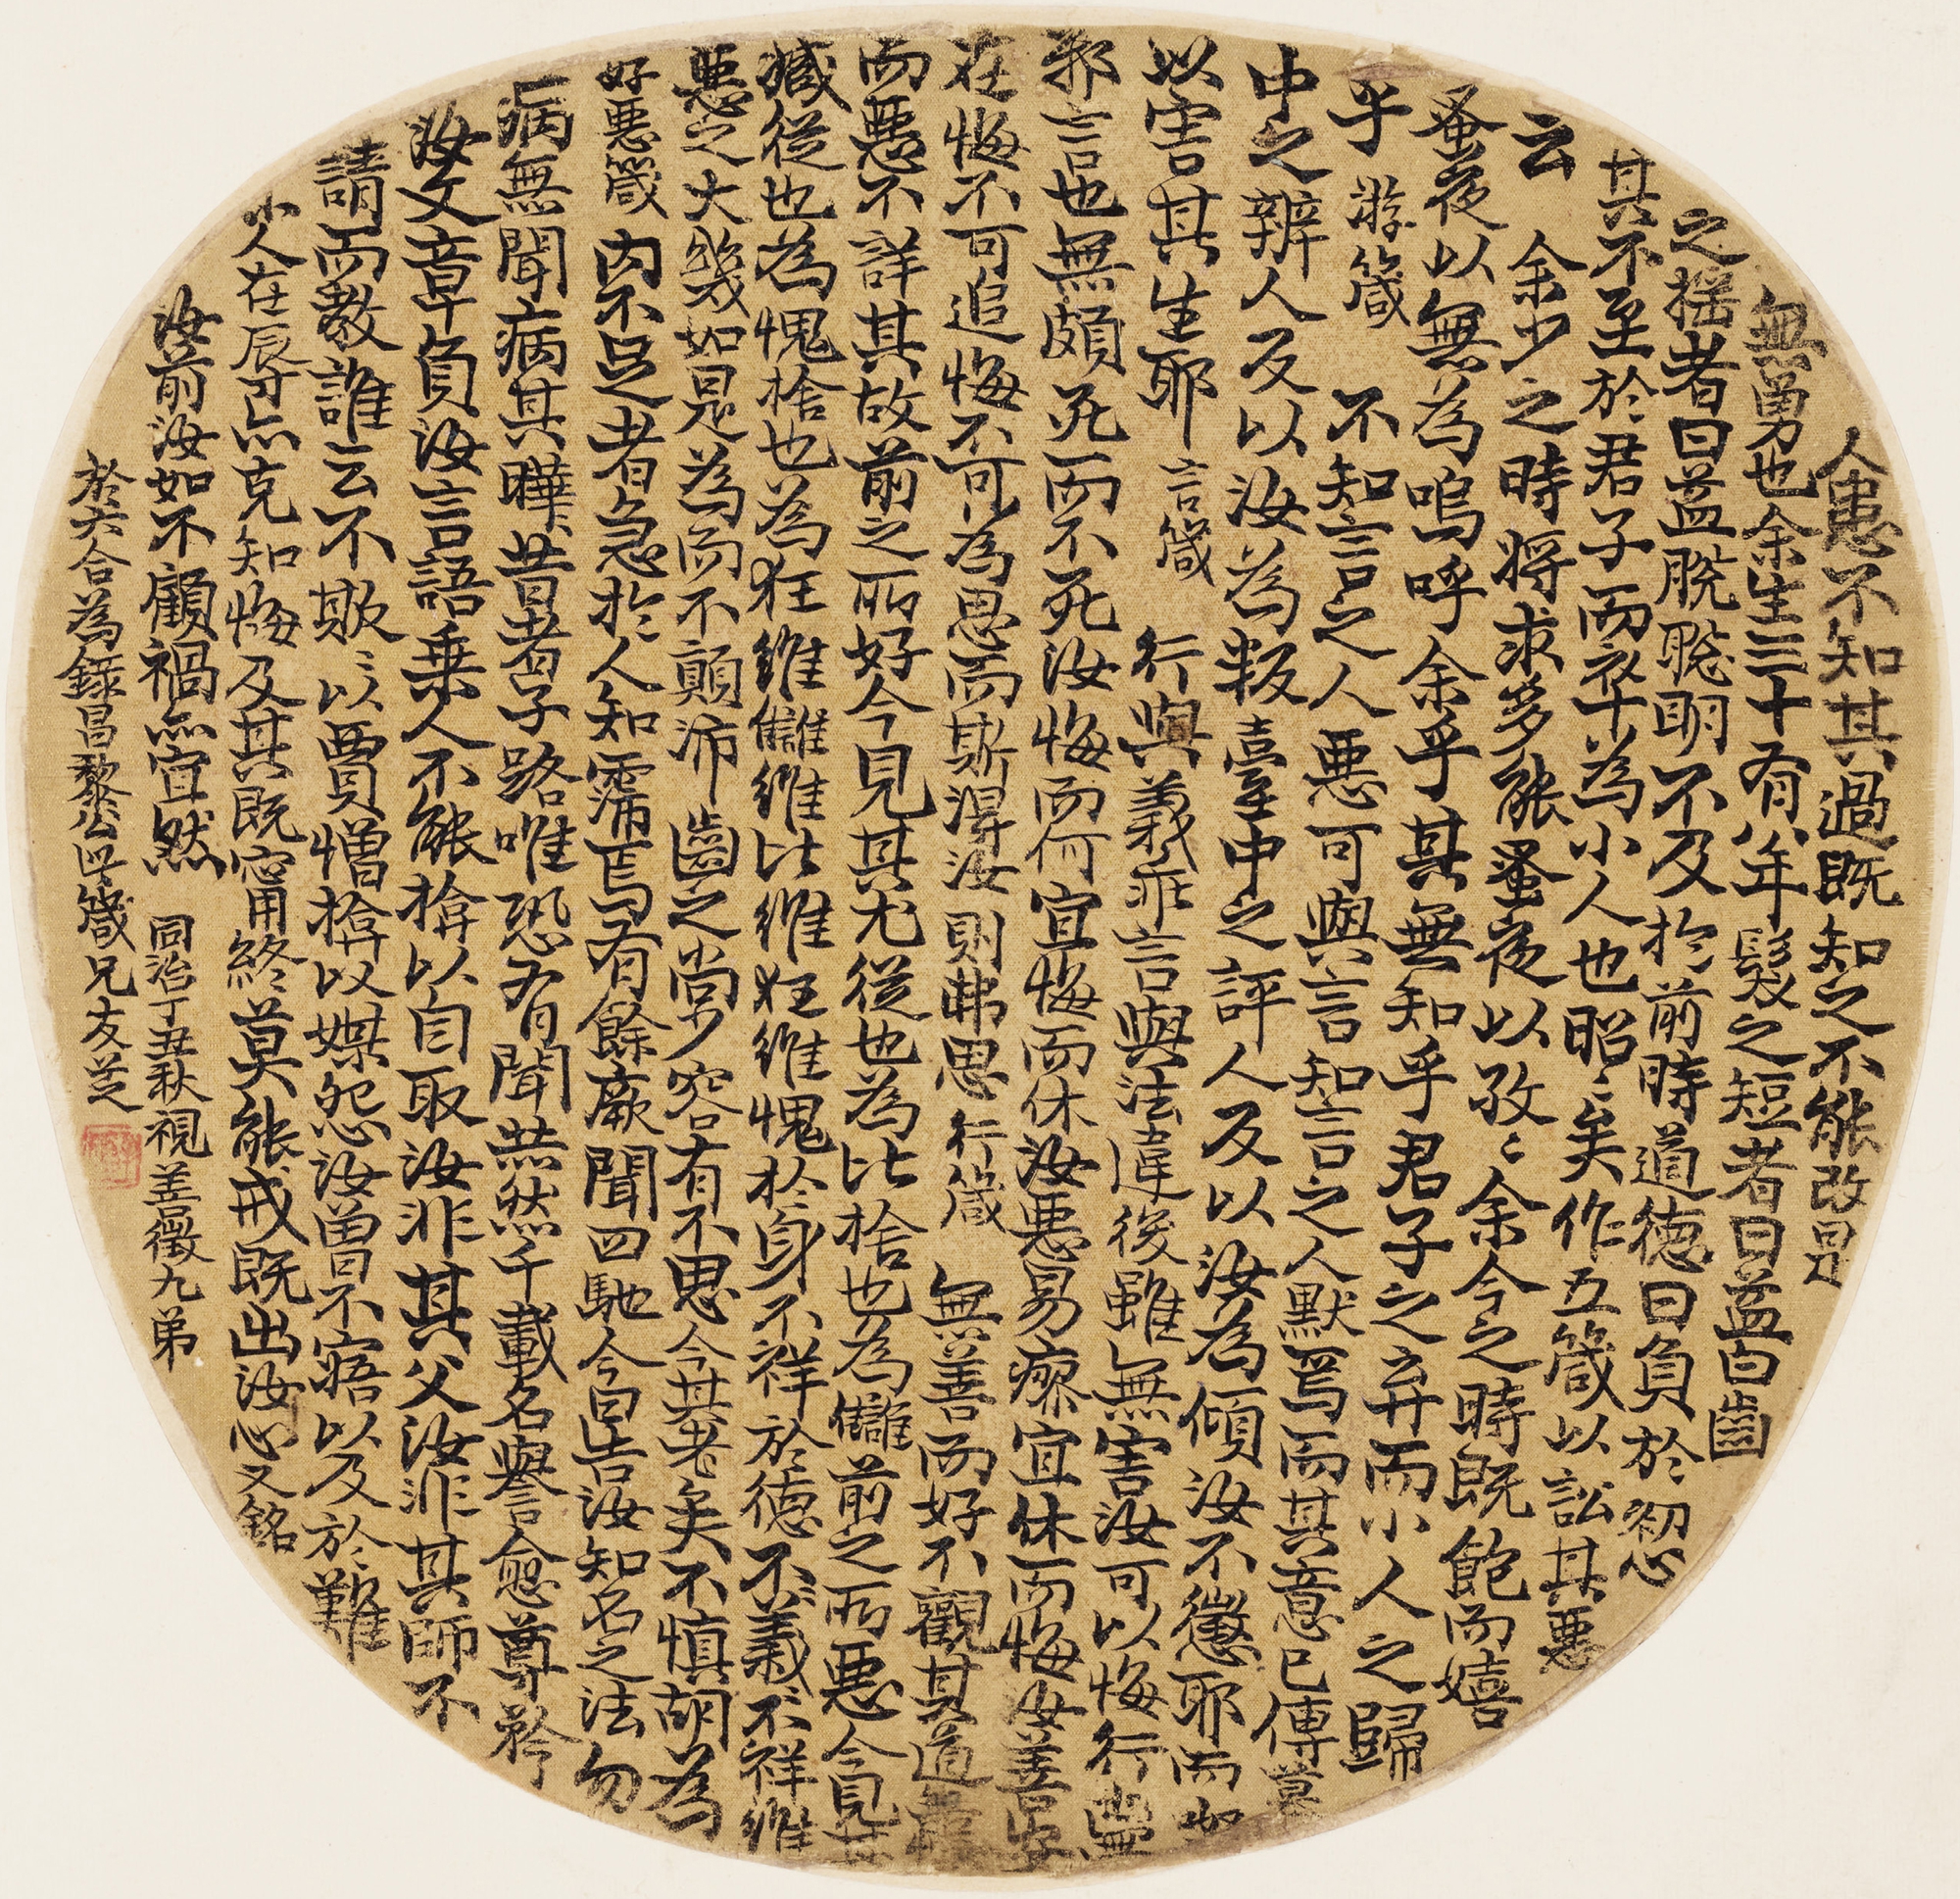 人患不知其過既知之不能改是
無勇也余生三十有八年髮之短者日益白齒
之搖者日益脫聰明不及於前時道德日負於初心
其不至於君子而卒為小人也昭〻矣作五箴以訟其惡
云　余少之時將求多能蚤夜以孜〻余今之時既飽而嬉
蚤夜以無為嗚呼余乎其無知乎君子之弃而小人之歸
乎　游箴　不知言之人惡可與言知言之人默焉而其意已傳幕
中之辨人反以汝為叛臺中之評人反以汝為傾汝不懲耶而呶〻
以害其生耶　言箴　行與義乖言與法違後雖無害汝可以悔行也無
邪言也無頗死而不死汝悔而何宜悔而休汝惡曷瘳宜休而悔汝善安
在悔不可追悔不可為思而斯得汝則弗思　行箴　無善而好不觀其道無悖
而惡不詳其故前之所好今見其尤從也為比捨也為讎前之所惡今見其
臧從也為愧捨也為狂維讎維比維狂維愧於身不祥於德不義不義不祥維
惡之大幾如是為而不顛沛齒之尚少容有不思今其老矣不慎胡為
好惡箴　內不足者急於人知霈焉有餘厥聞四馳今日告汝知名之法勿
病無聞病其曄〻昔者子路唯恐有聞赫然千載名譽愈尊矜
汝文章負汝言語乗人不能揜以自取汝非其父汝非其師不
請而敎誰云不欺〻以賈憎揜以媒怨汝曾不寤以及於難
小人在辱亦克知悔及其既寧終莫能戒既出汝心又銘
汝前汝如不顧禍亦宜然　同治丁丑秋視善徵九弟
於六合為錄昌黎公此箴兄友芝